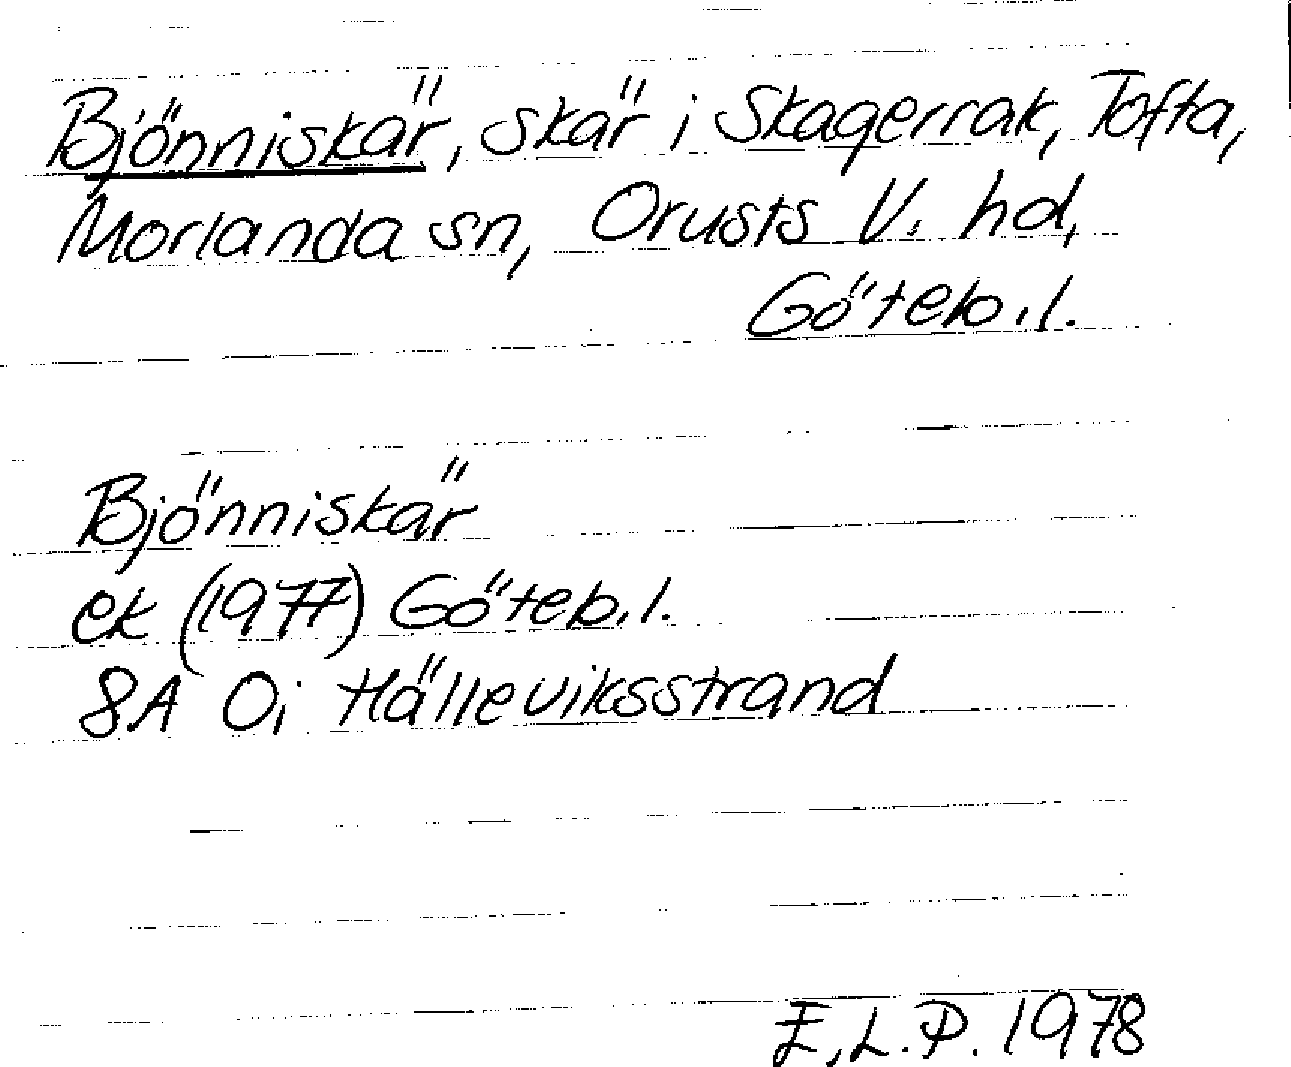 Bjönniskär, skär i Skagerrak, Tofta,
Morlanda sn, Orusts V. hd,
Göteb.l.
Bjönniskär
ek (1977) Göteb.l.
8A 0i Hälleviksstrand
E.L.P. 1978